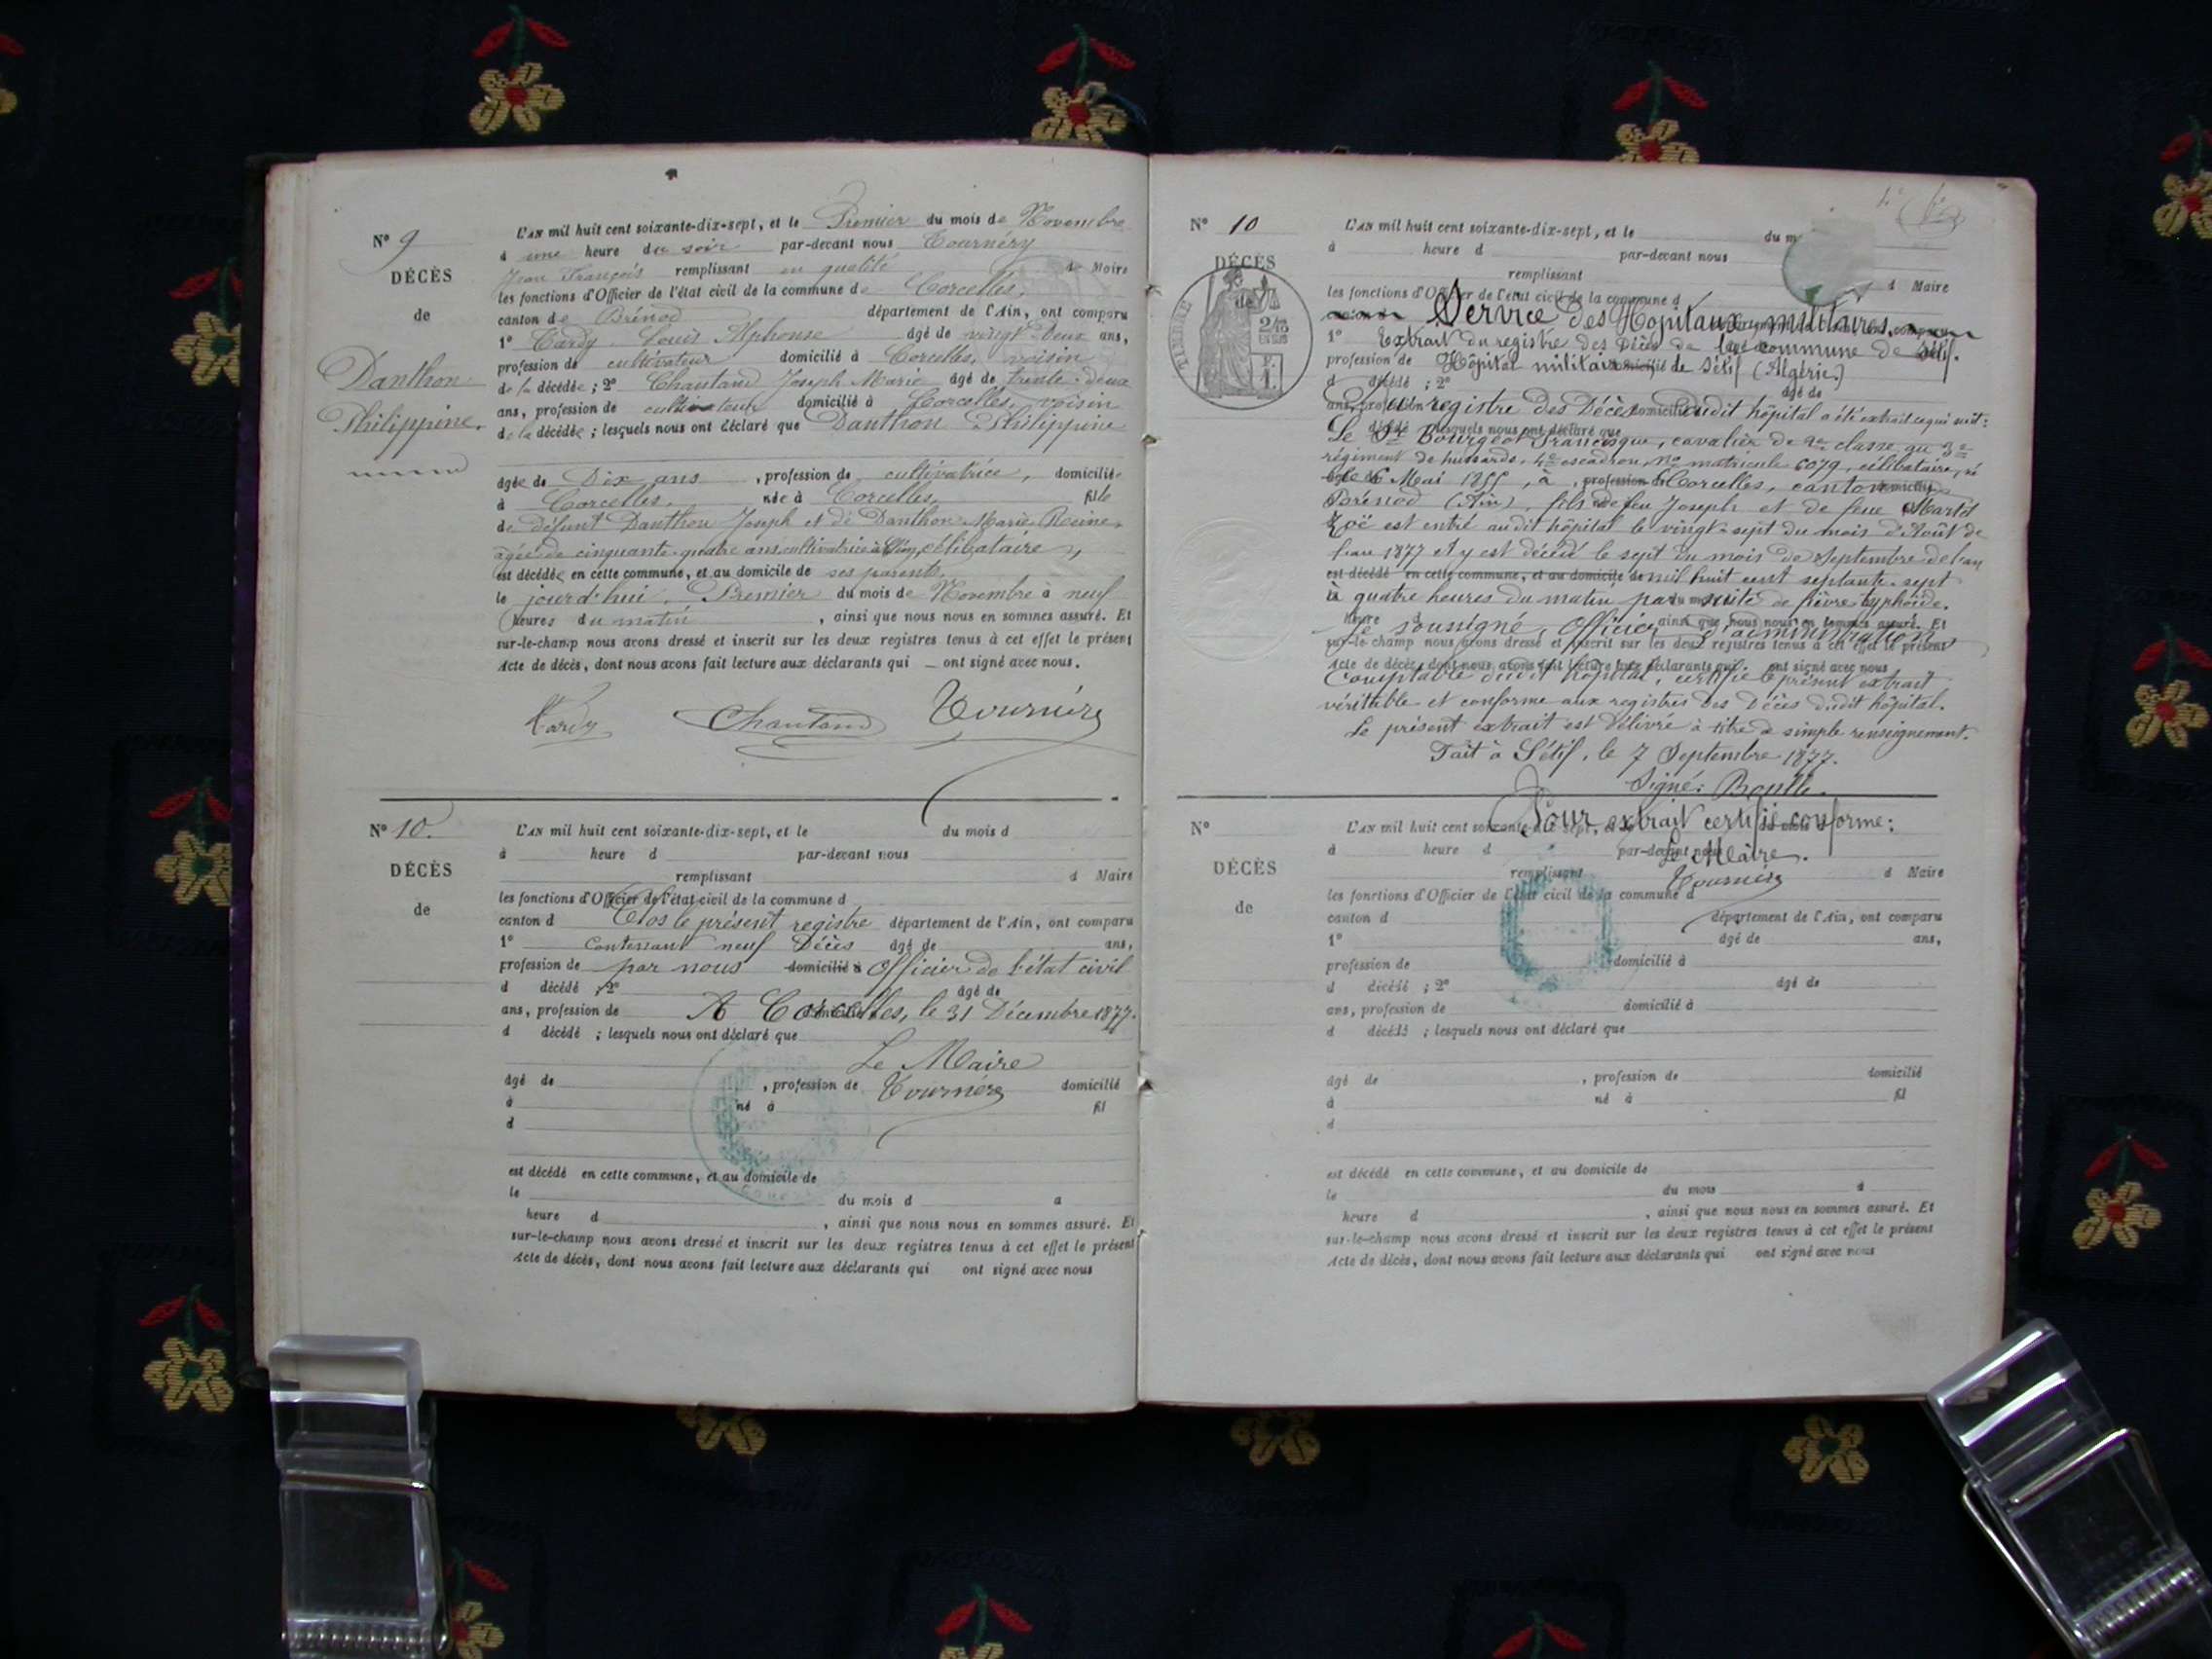 N° 9
DÉCÈS
de
Danthon
Philippine.
L'AN mil huit cent soixante-dix-sept, et le Premier du mois de Novembre
à une heure du soir par-devant nous Tournéry
Jean François remplissant en qualité d Maire
les fonctions d'Officier de l'état civil de la commune de Corcelles,
canton de Brénod département de l'Ain, ont comparu
1° Tardy Louis Alphonse âgé de vingt-deux ans,
profession de cultivateur domicilié à Corcelles, voisin
de la décédée ; 2° Chautand Joseph Marie âgé de trente-deux
ans, profession de cultivateur domicilié à Corcelles, voisin
de la décédée ; lesquels nous ont déclaré que Danthon Philippine
âgée de Dix ans , profession de cultivatrice, domiciliée
à Corcelles, née à Corcelles, fille
de défunt Danthon Joseph et de Danthon Marie Rosine,
âgée de cinquante-quatre ans, cultivatrice à célibataire
est décédée en cette commune, et au domicile de ses parents,
le jourd'hui, Premier du mois de Novembre à neuf
heures du matin , ainsi que nous nous en sommes assuré. Et
sur-le-champ nous avons dressé et inscrit sur les deux registres tenus à cet effet le présent
Acte de décès, dont nous avons fait lecture aux déclarants qui ont signé avec nous.
Tardy Chautand Tournéry
N° 10.
DÉCÈS
de
L'AN mil huit cent soixante-dix-sept, et le du mois d
à heure d par-devant nous
remplissant d Maire
les fonctions d'Officier de l'état civil de la commune d
canton d Clos le présent registre département de l'Ain, ont comparu
1° Contenant neuf Décès âgé de ans,
profession de par nous domicilié à Officier de l'état civil
d décédé ; 2° âgé de
ans, profession de A Corcelles, le 31 Décembre 1877.
d décédé ; lesquels nous ont déclaré que
Le Maire
âgé de , profession de Tournéry domicilié
à né à fil
d
est décédé en cette commune, et au domicile de
le du mois d à
heure d , ainsi que nous nous en sommes assuré. Et
sur-le-champ nous avons dressé et inscrit sur les deux registres tenus à cet effet le présent
Acte de décès, dont nous avons fait lecture aux déclarants qui ont signé avec nous
N° 10
DÉCÈS
de
TIMBRE
L'AN mil huit cent soixante-dix-sept, et le du m
à heure d par-devant nous
remplissant d Maire
les fonctions d'Officier de l'état civil de la commune d
Service des Hôpitaux militaires,
1° Extrait du registre des Décès de la commune de Sétif.
profession de Hôpital militaire de Sétif (Algérie)
d décédé ; 2° âgé de
Du registre des Décès dudit hôpital a été extrait ce qui suit :
d décédé lesquels nous ont déclaré que
Le Sr Bourgeot Francisque, cavalier de 2e classe au 3e
régiment de hussards, 4e escadron, No matricule 6079, célibataire, né
le 6 Mai 1855, à Corcelles, canton de
Brénod (Ain), fils de feu Joseph et de feue Martel
Zoë est entré audit hôpital le vingt-sept du mois d'Août de
l'an 1877 et y est décédé le sept du mois de Septembre de l'an
est décédé en cette commune, et au domicile de mil huit cent septante-sept
à quatre heures du matin par suite de fièvre typhoïde.
heure d ainsi que nous nous en sommes assuré. Et
Je soussigné, Officier d'administration
sur-le-champ nous avons dressé et inscrit sur les deux registres tenus à cet effet le présent
Acte de décès, dont nous avons fait lecture aux déclarants qui ont signé avec nous
Comptable dudit hôpital, certifie le présent extrait
véritable et conforme aux registres des Décès dudit hôpital.
Le présent extrait est délivré à titre de simple renseignement.
Fait à Sétif, le 7 Septembre 1877.
Signé:
Pour extrait certifié conforme:
N°
DÉCÈS
de
L'AN mil huit cent soixante-dix-sept, et le
à heure d par-devant nous Le Maire.
remplissant Tournéry d Maire
les fonctions d'Officier de l'état civil de la commune d
canton d département de l'Ain, ont comparu
1° âgé de ans,
profession de domicilié à
d décédé ; 2° âgé de
ans, profession de domicilié à
d décédé ; lesquels nous ont déclaré que
âgé de , profession de domicilié
à né à fil
d
est décédé en cette commune, et au domicile de
le du mois d
heure d , ainsi que nous nous en sommes assuré. Et
sur-le-champ nous avons dressé et inscrit sur les deux registres tenus à cet effet le présent
Acte de décès, dont nous avons fait lecture aux déclarants qui ont signé avec nous